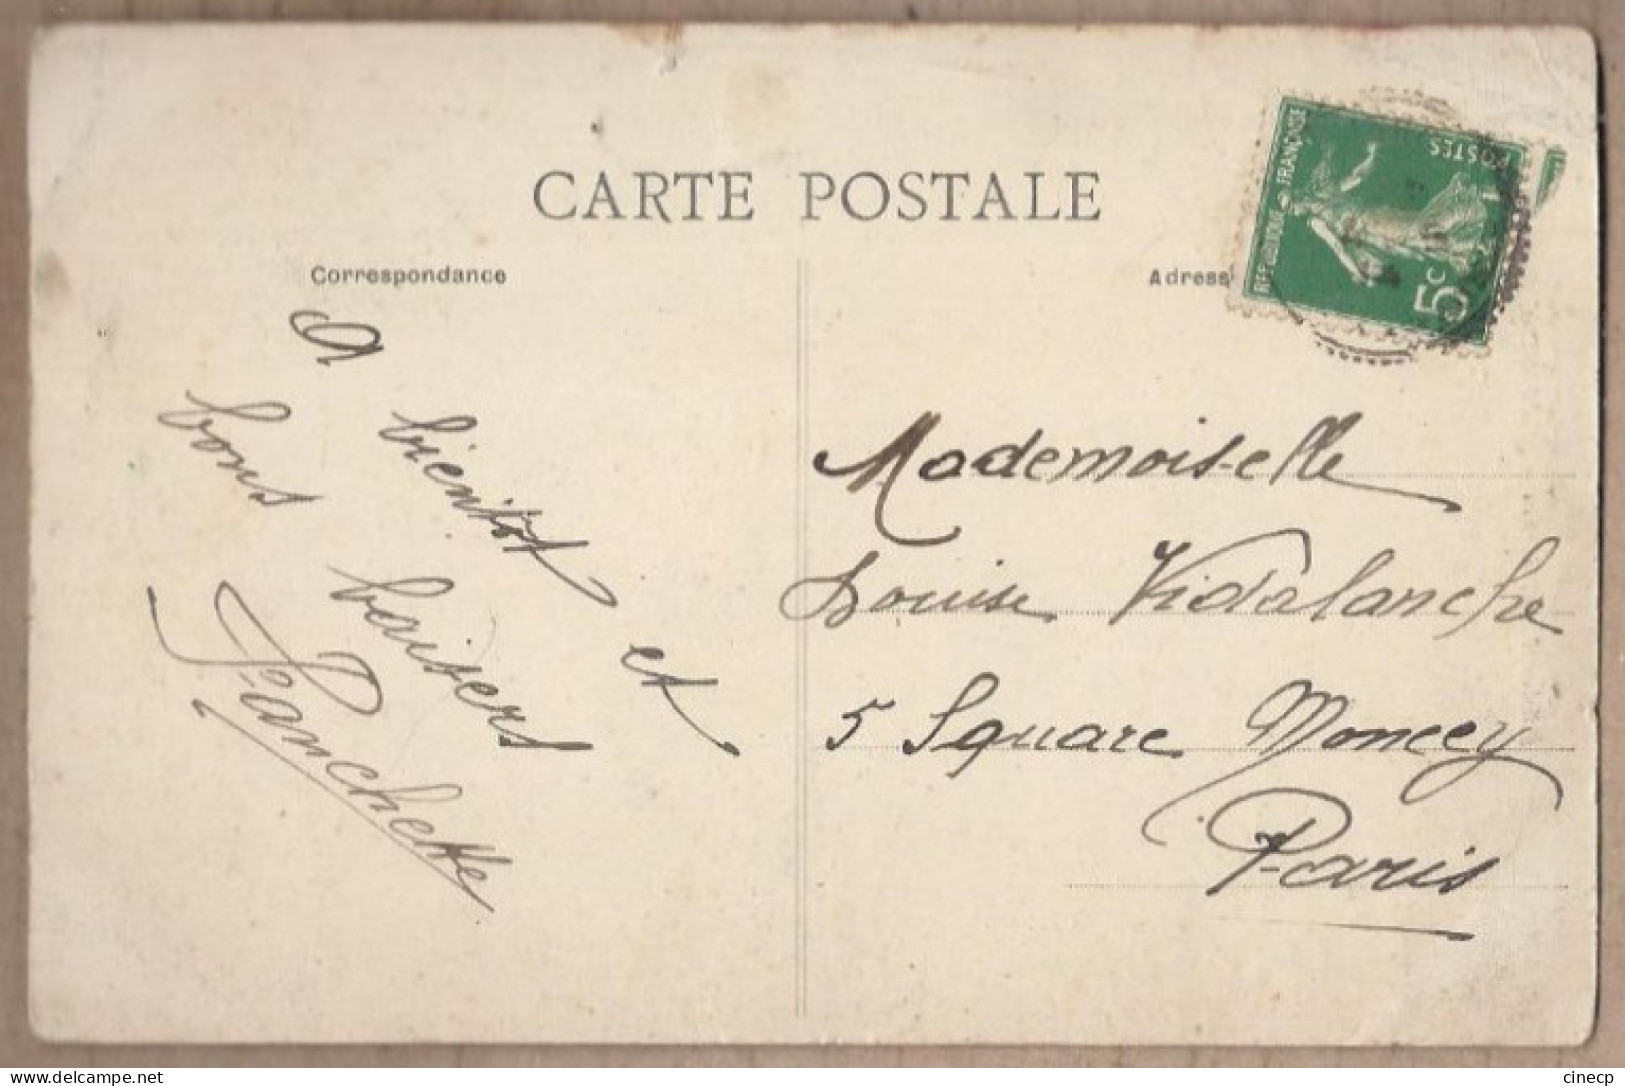 CARTE POSTALE
Correspondance
Adress
RÉPUBLIQUE FRANÇAISE
POSTES
5c
A bientôt et
bons baisers
Franchette
Mademoiselle
Louise Vidalanche
5 Square Moncey
Paris
delcampe.net
cinecp